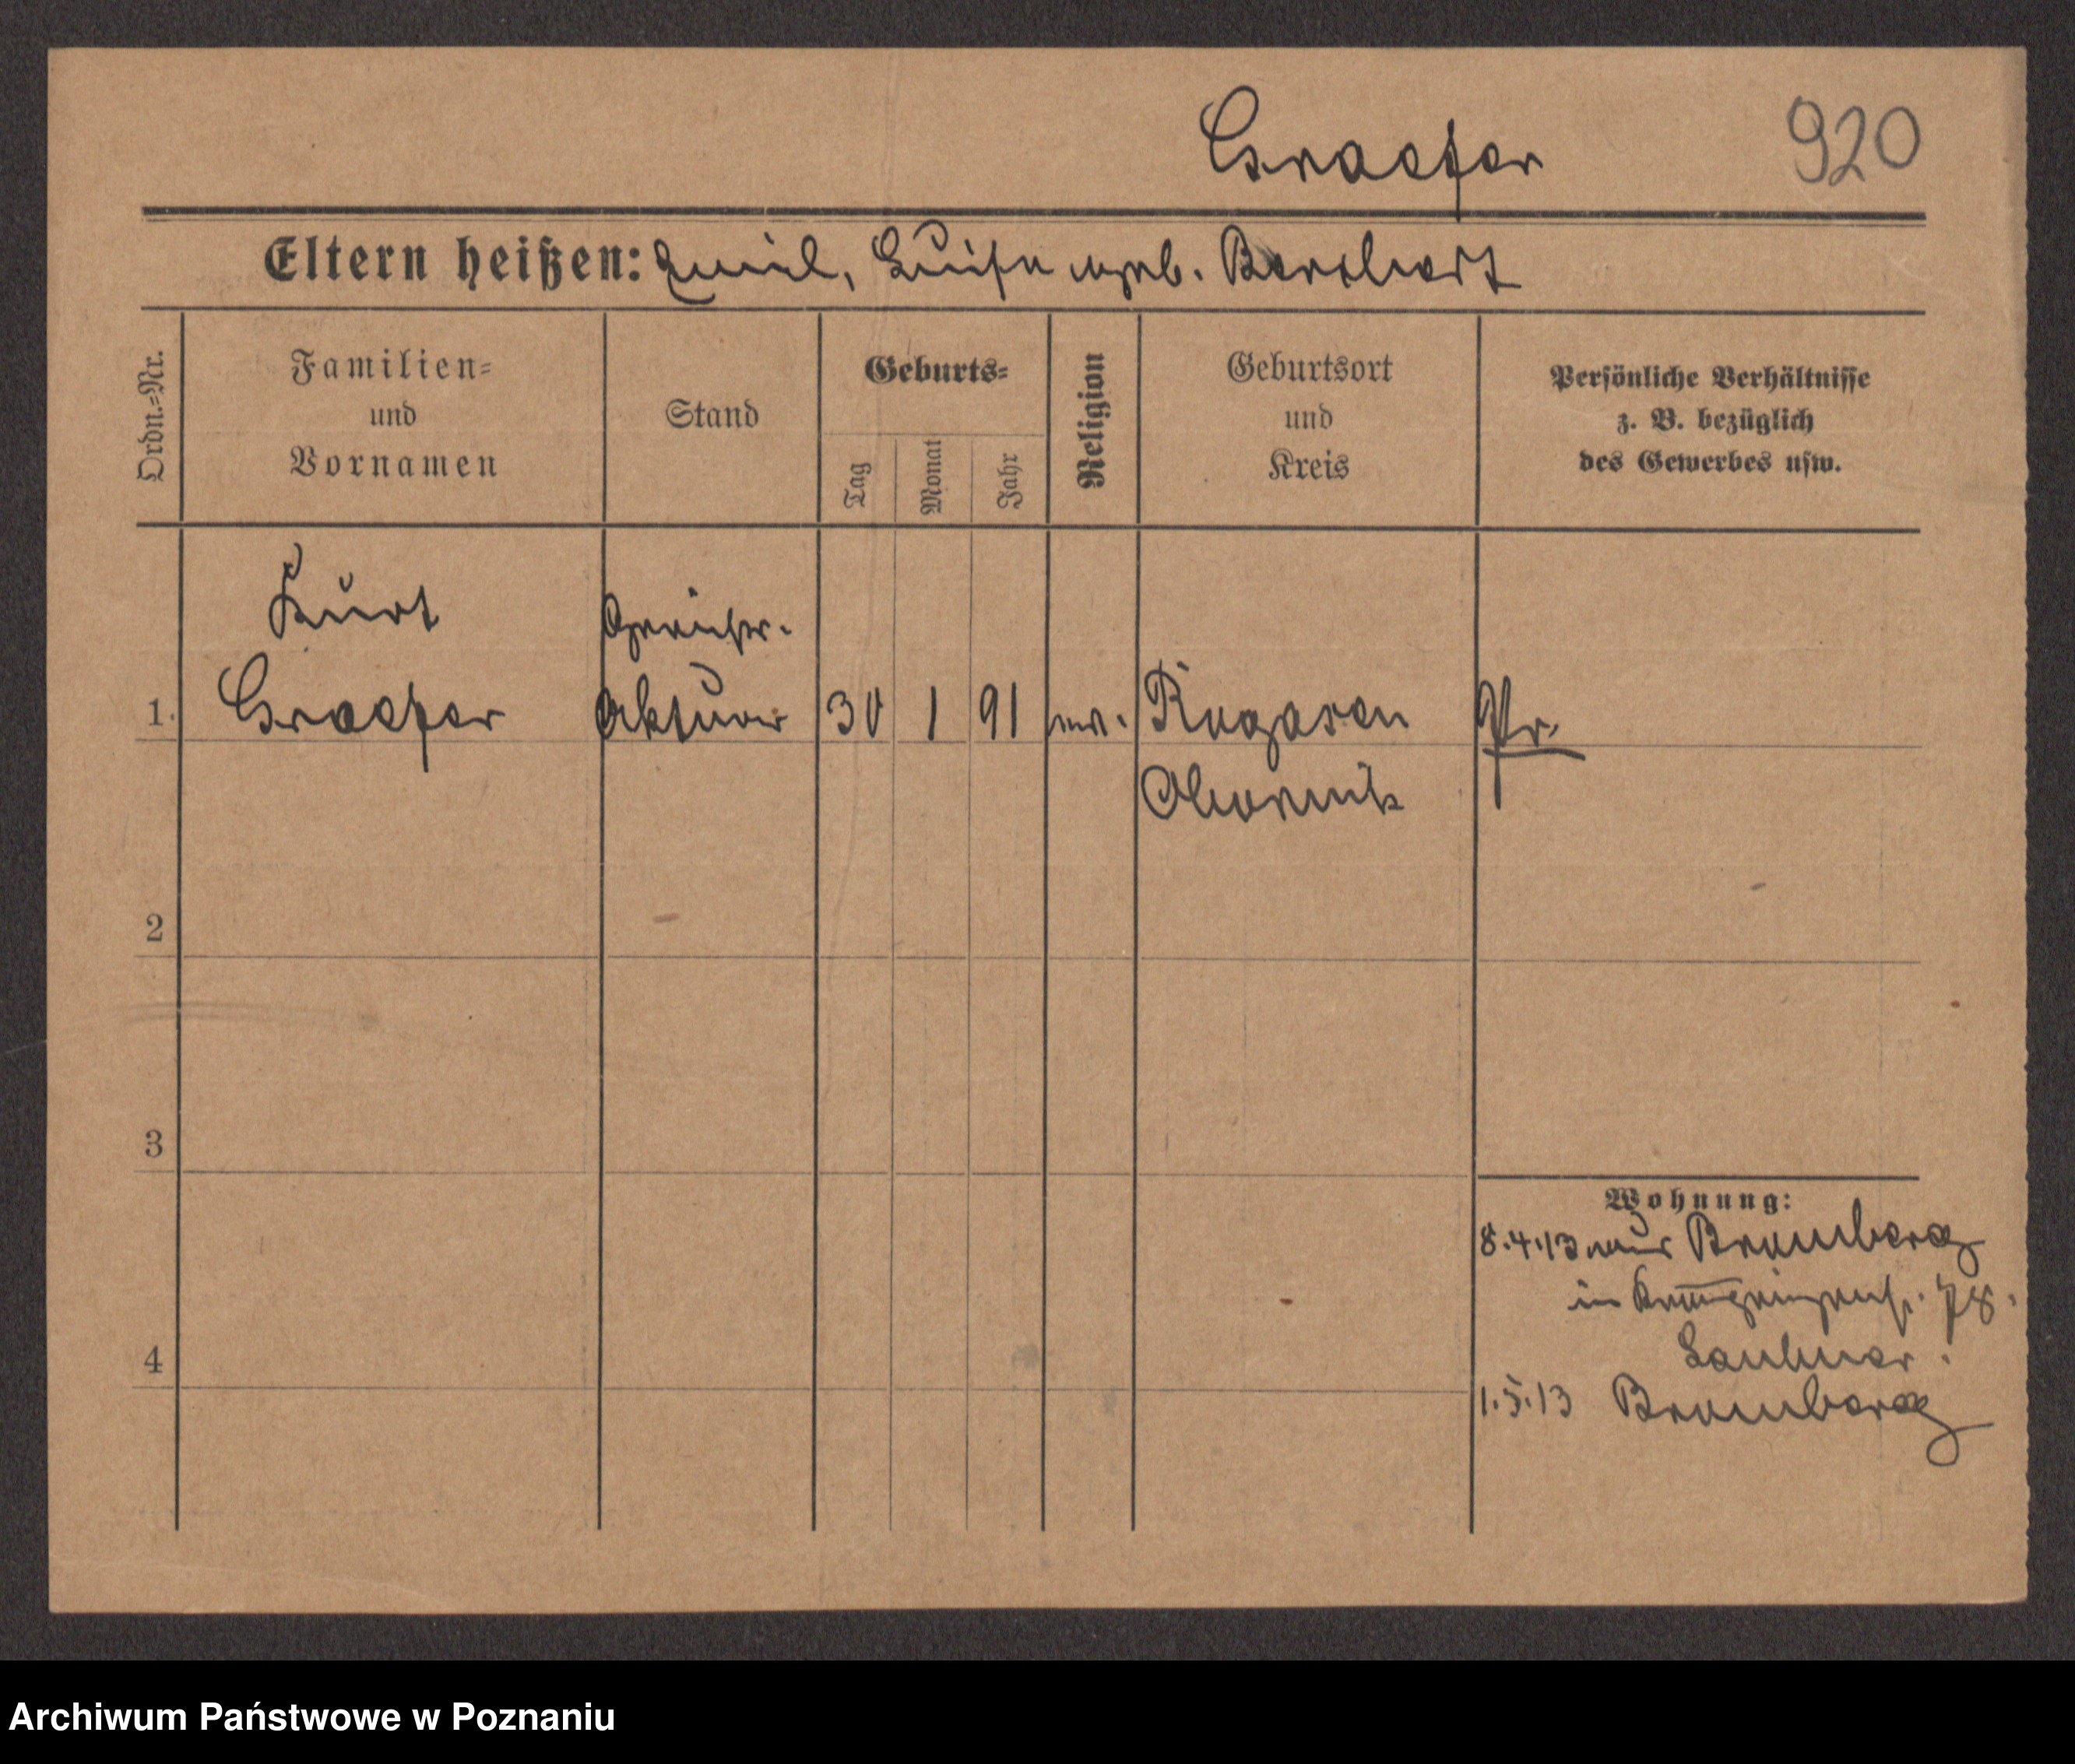 Graefer 920
Eltern heißen: Emil, Luise geb. Borchert
Ordn.-Nr.
Familien-
und
Vornamen
Stand
Geburts-
Tag
Monat
Jahr
Religion
Geburtsort
und
Kreis
Persönliche Verhältnisse
z. B. bezüglich
des Gewerbes usw.
Kurt
Gerichts-
1. Graefer Aktuar 30 1 91 ev. Rogasen Pr.
Obornik
2
3
Wohnung:
8.4.13 aus Bromberg
in 78.
4
1.5.13 Bromberg
Archiwum Państwowe w Poznaniu